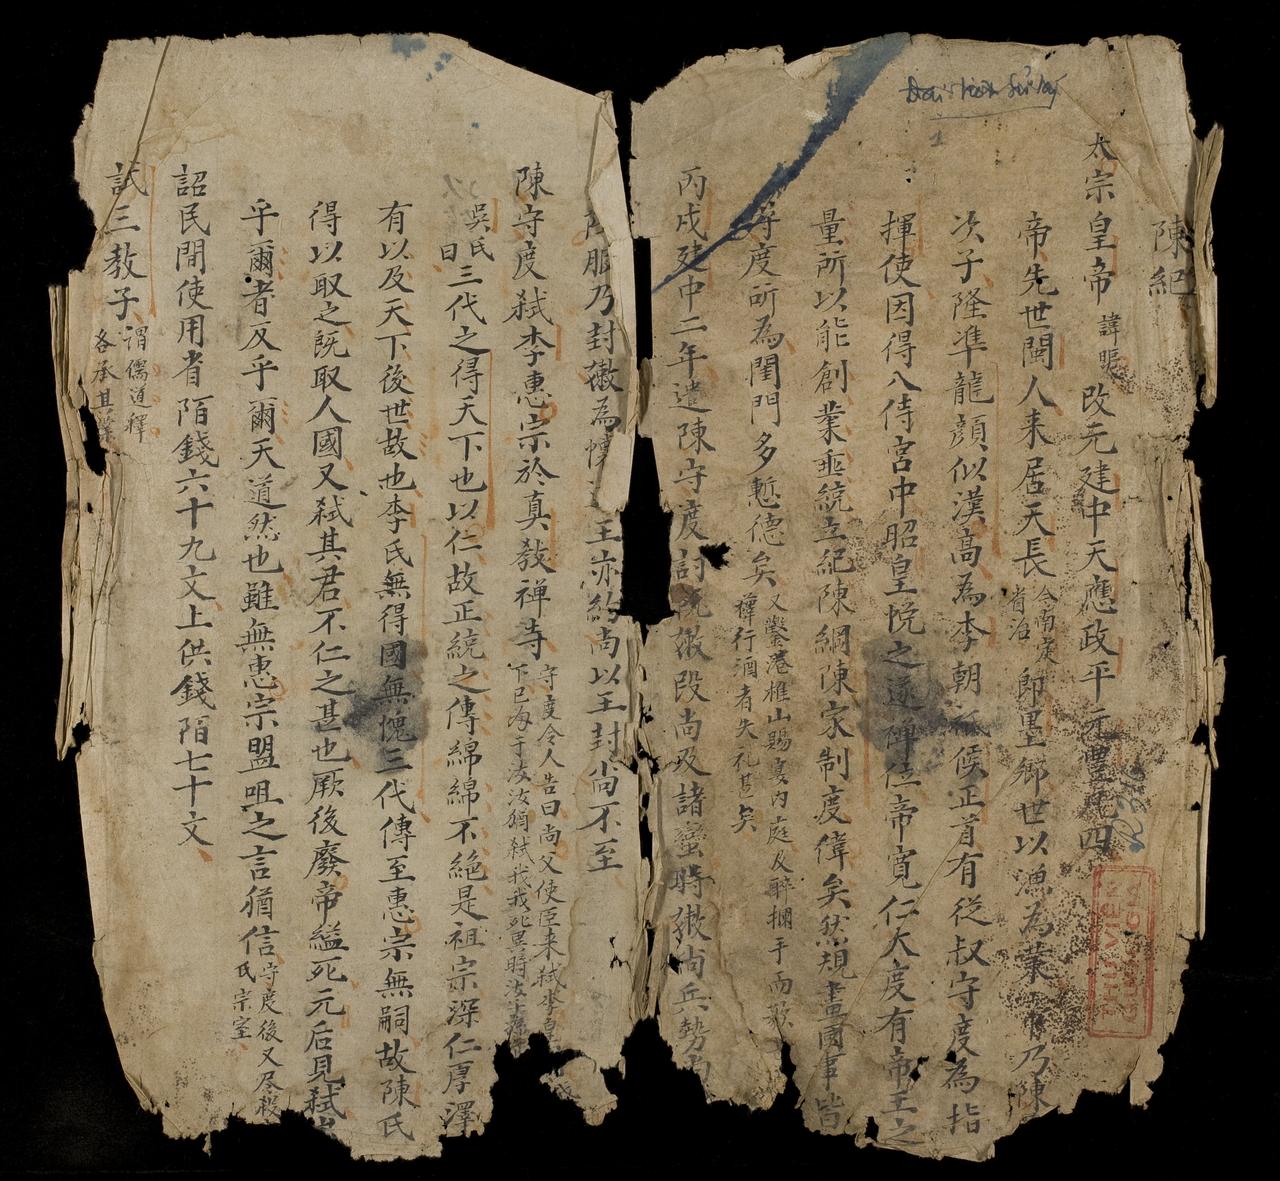 陳紀
太宗皇帝 諱 改元建中天應政平元豐 四
帝先世閩人来居天長 今南定省治 即墨鄉世以漁為業 乃陳
次子隆準龍顔似漢高為李朝祗候正首有従叔守度為指
揮使因得入侍宮中昭皇悅之遂禅位帝寛仁大度有帝王之
量所以能創業垂統立紀陳綱陳家制度偉矣然規畫國事皆
守度所為閨門多慙德矣 又鑿港樵山賜宴内庭及醉攔手而歌
行酒者失礼甚矣
丙戌建中二年遣陳守度討 嫩段尚及諸蠻時嫩尚兵勢
服乃封嫩為懷 王亦約尚以王封尚不至
陳守度弑李惠宗於真教禅寺 守度令人告曰尚父使臣来弑李皇
下已 于汝汝猶弑我我死異時汝子孫
吳氏曰三代之得天下也以仁故正統之傳綿綿不絶是祖宗深仁厚澤
有以及天下後世故也李氏無得國無愧三代傳至惠宗無嗣故陳氏
得以取之既取人國又弑其君不仁之甚也厥後廢帝縊死元后見弑
乎爾者反乎爾天道然也雖無惠宗盟咀之言猶信 守度後又尽殺
氏宗室
詔民間使用省陌錢六十九文上供錢陌七十文
試三教子 謂儒道釋各承其業
THƯ VIỆN